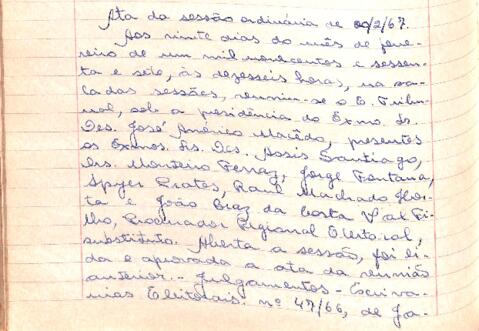 Ata da sessão ordinária de 20/2/67.
Aos vinte dias do mês de feve-
reiro de um mil novecentos e sessen-
ta e sete, às dezesseis horas, na sa-
la das sessões, reuniu-se o E. Tribu-
nal, sob a presidência do Exmo. Sr.
Des. José Américo Macêdo, presentes
os Exmos. Srs. Des. Assis Santiago,
Drs. Monteiro Ferraz, Jorge Fontana,
Spyer Prates, Raul Machado Hor-
ta e João Braz da Costa Val Fi-
lho, Procurador Regional Eleitoral,
substituto. Aberta a sessão, foi li-
da e aprovada a ata da reunião
anterior. - Julgamentos - Escriva-
nias Eleitorais. nº 47/66, de Ja-